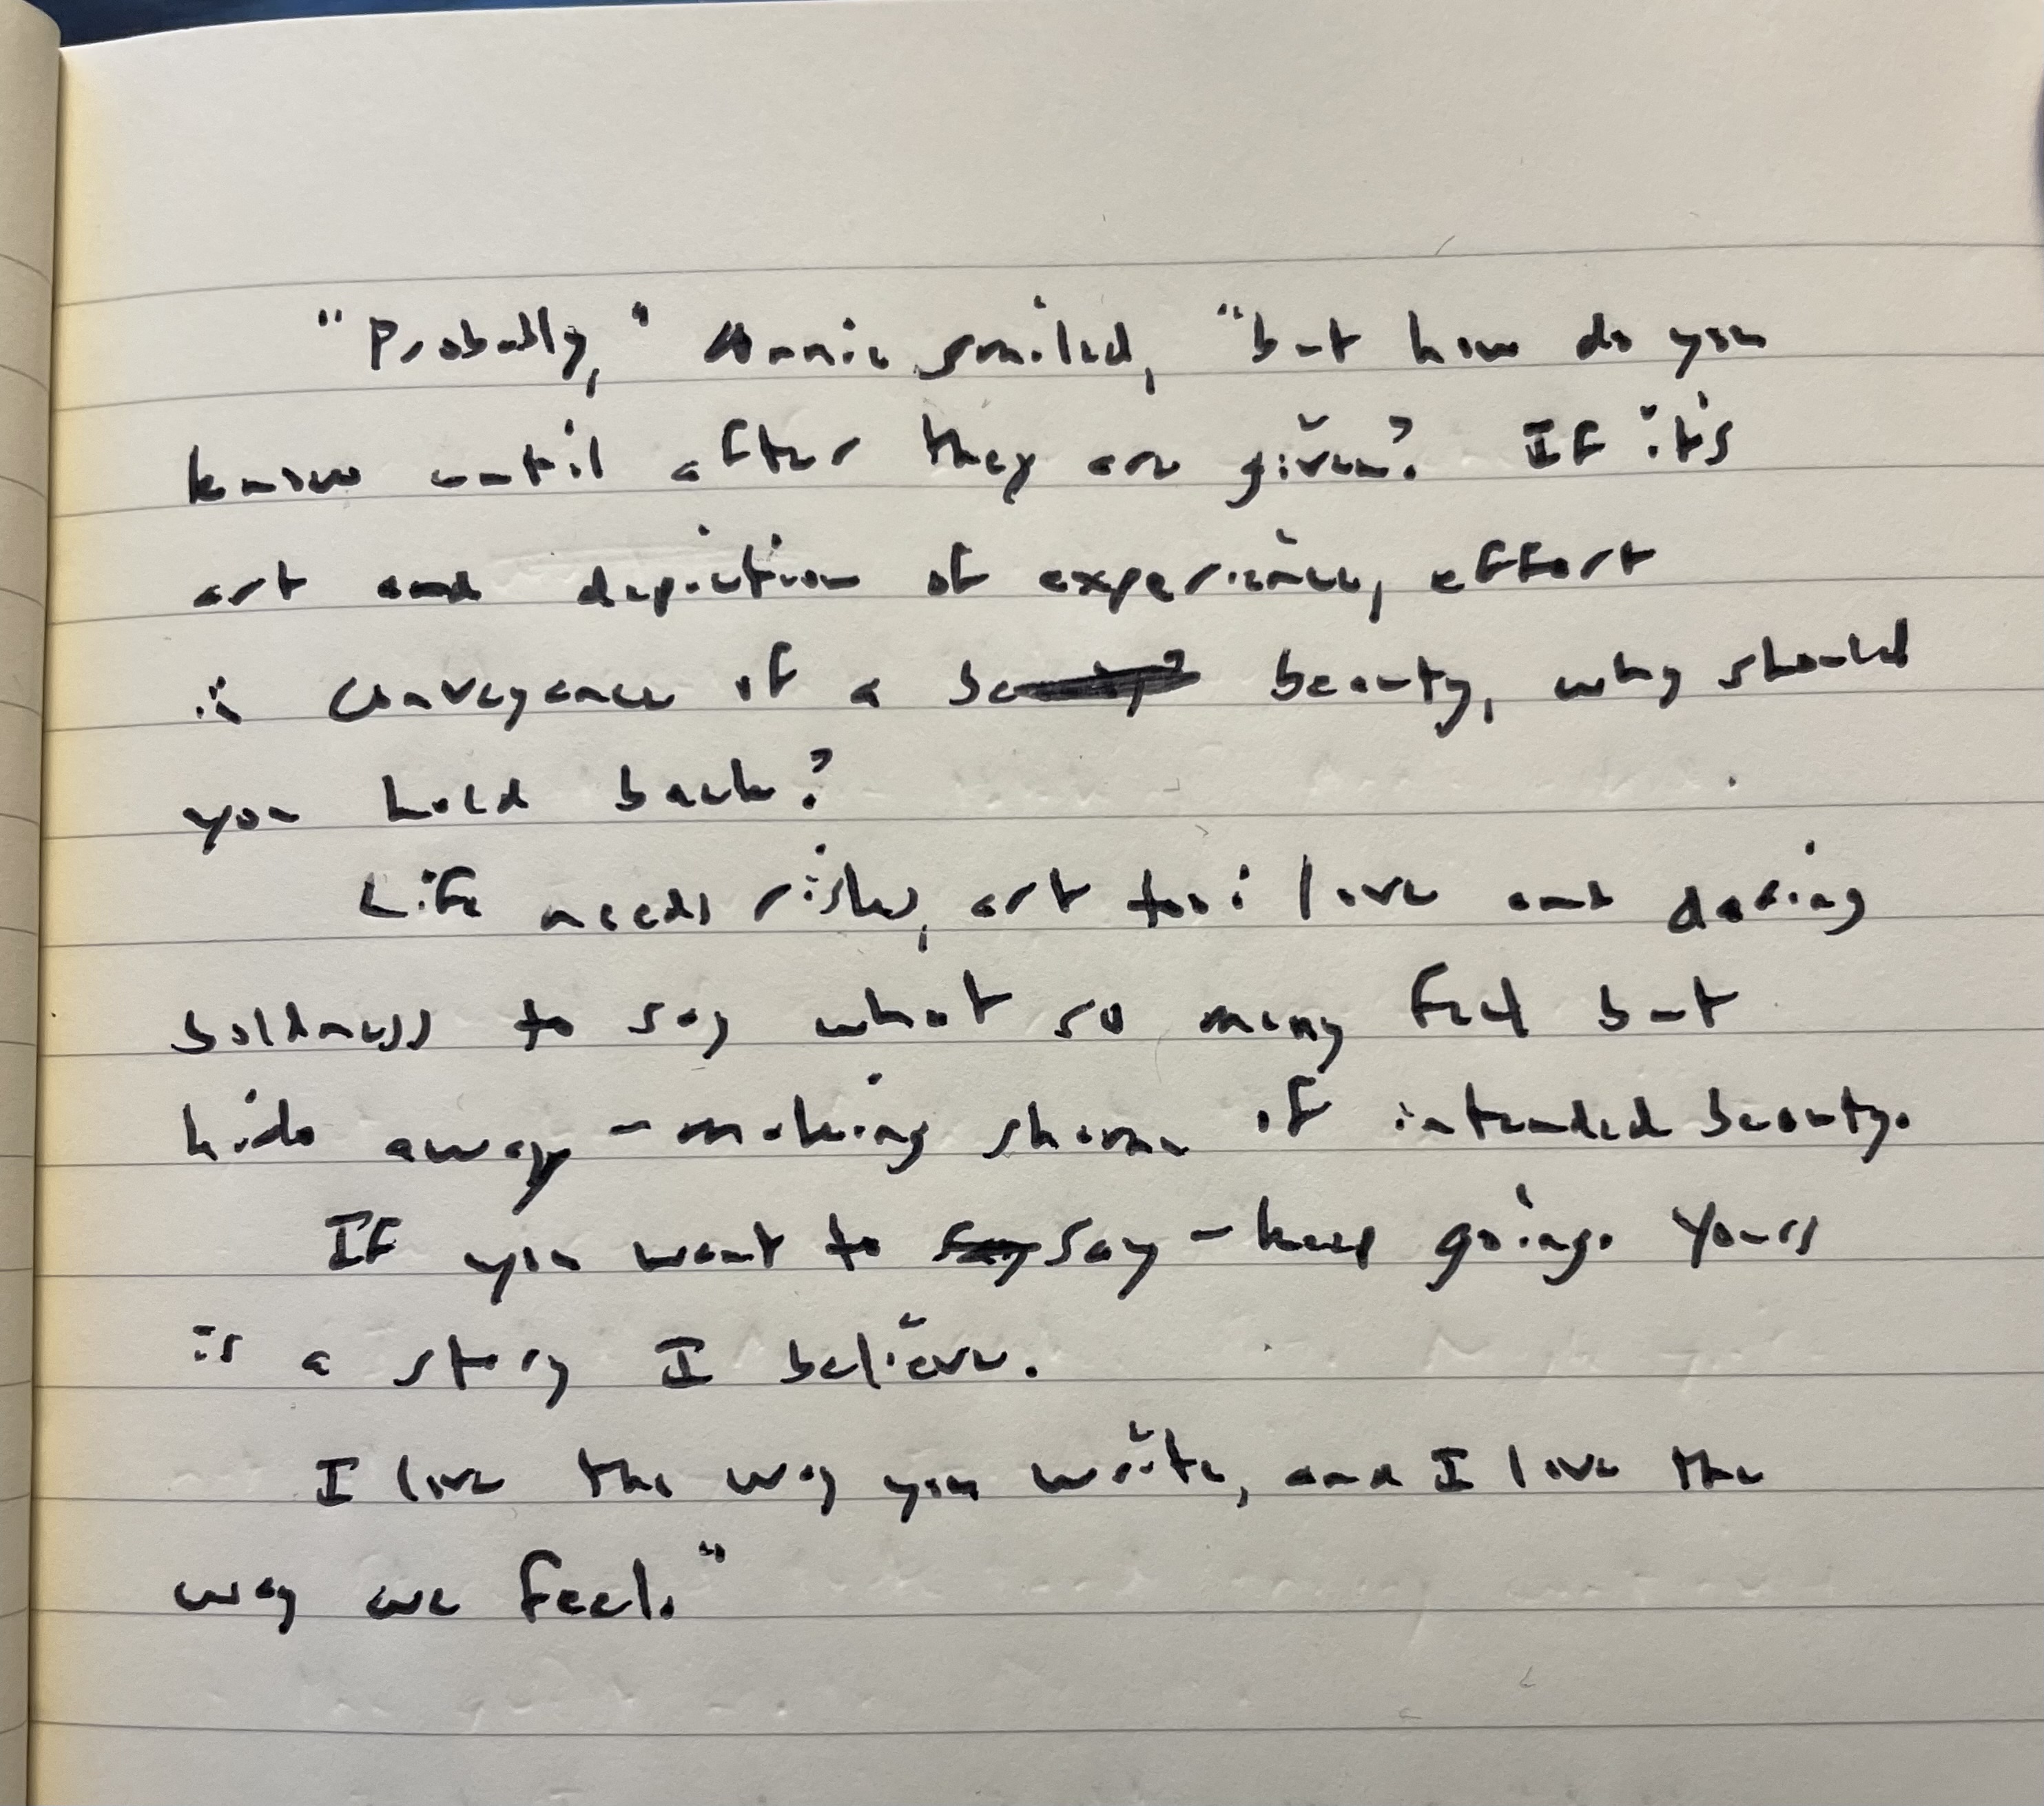 "Probably," Annie smiled, "but how do you
know until after they are given? If it's
art and depiction of experience, effort
is conveyance of a beauty, why should
you hold back?
Life needs risks, art too: love and daring
boldness to say what so many feel but
hide away - making shame of intended beauty.
If you want to say - keep going. Yours
is a story I believe.
I love the way you write, and I love the
way we feel."